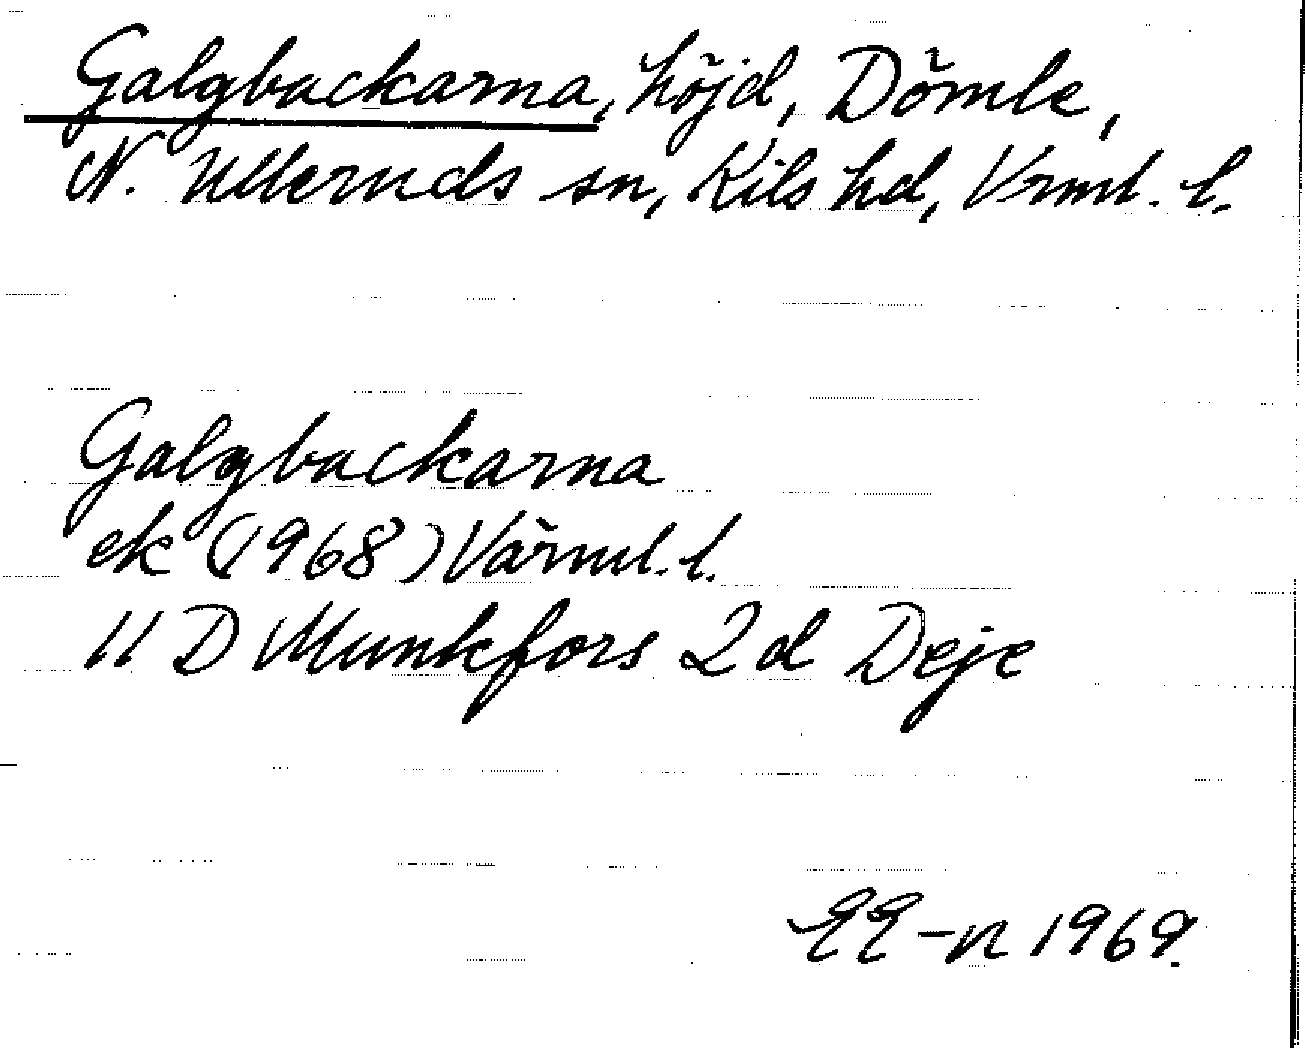 Galgbackarna, höjd, Dömle,
N. Ulleruds sn, Kils hd, Vrml. l.
Galgbackarna
ek (1968) Värml. l.
11 D Munkfors 2d Deje
EE-n 1969.